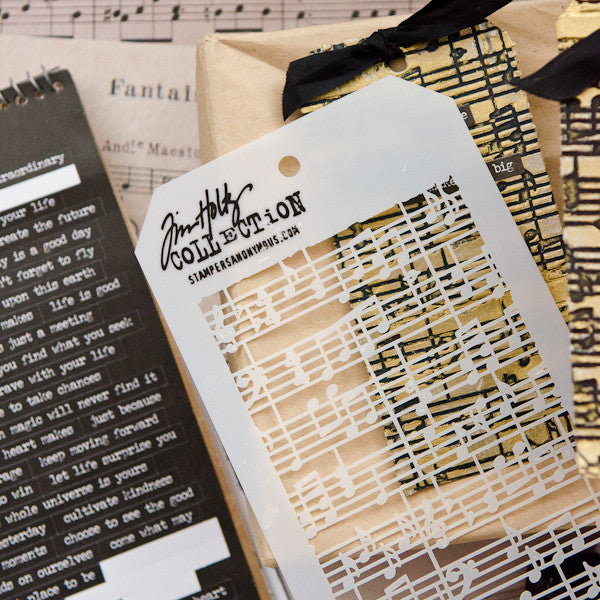 Fantais
And^te Maesto
Tim Holtz
COLLECTION
STAMPERSANONYMOUS.COM
big
raordinary
your life
reate the future
y is a good day
't forget to fly
upon this earth
makes life is good
s just a meeting
you find what you seek
rave with your life
e to take chances
n magic will never find it
heart makes just because
rage keep moving forward
o win let life surprise you
whole universe is yours
sterday cultivate kindness
moments choose to see the good
ds on ourselves come what may
place to be
heart